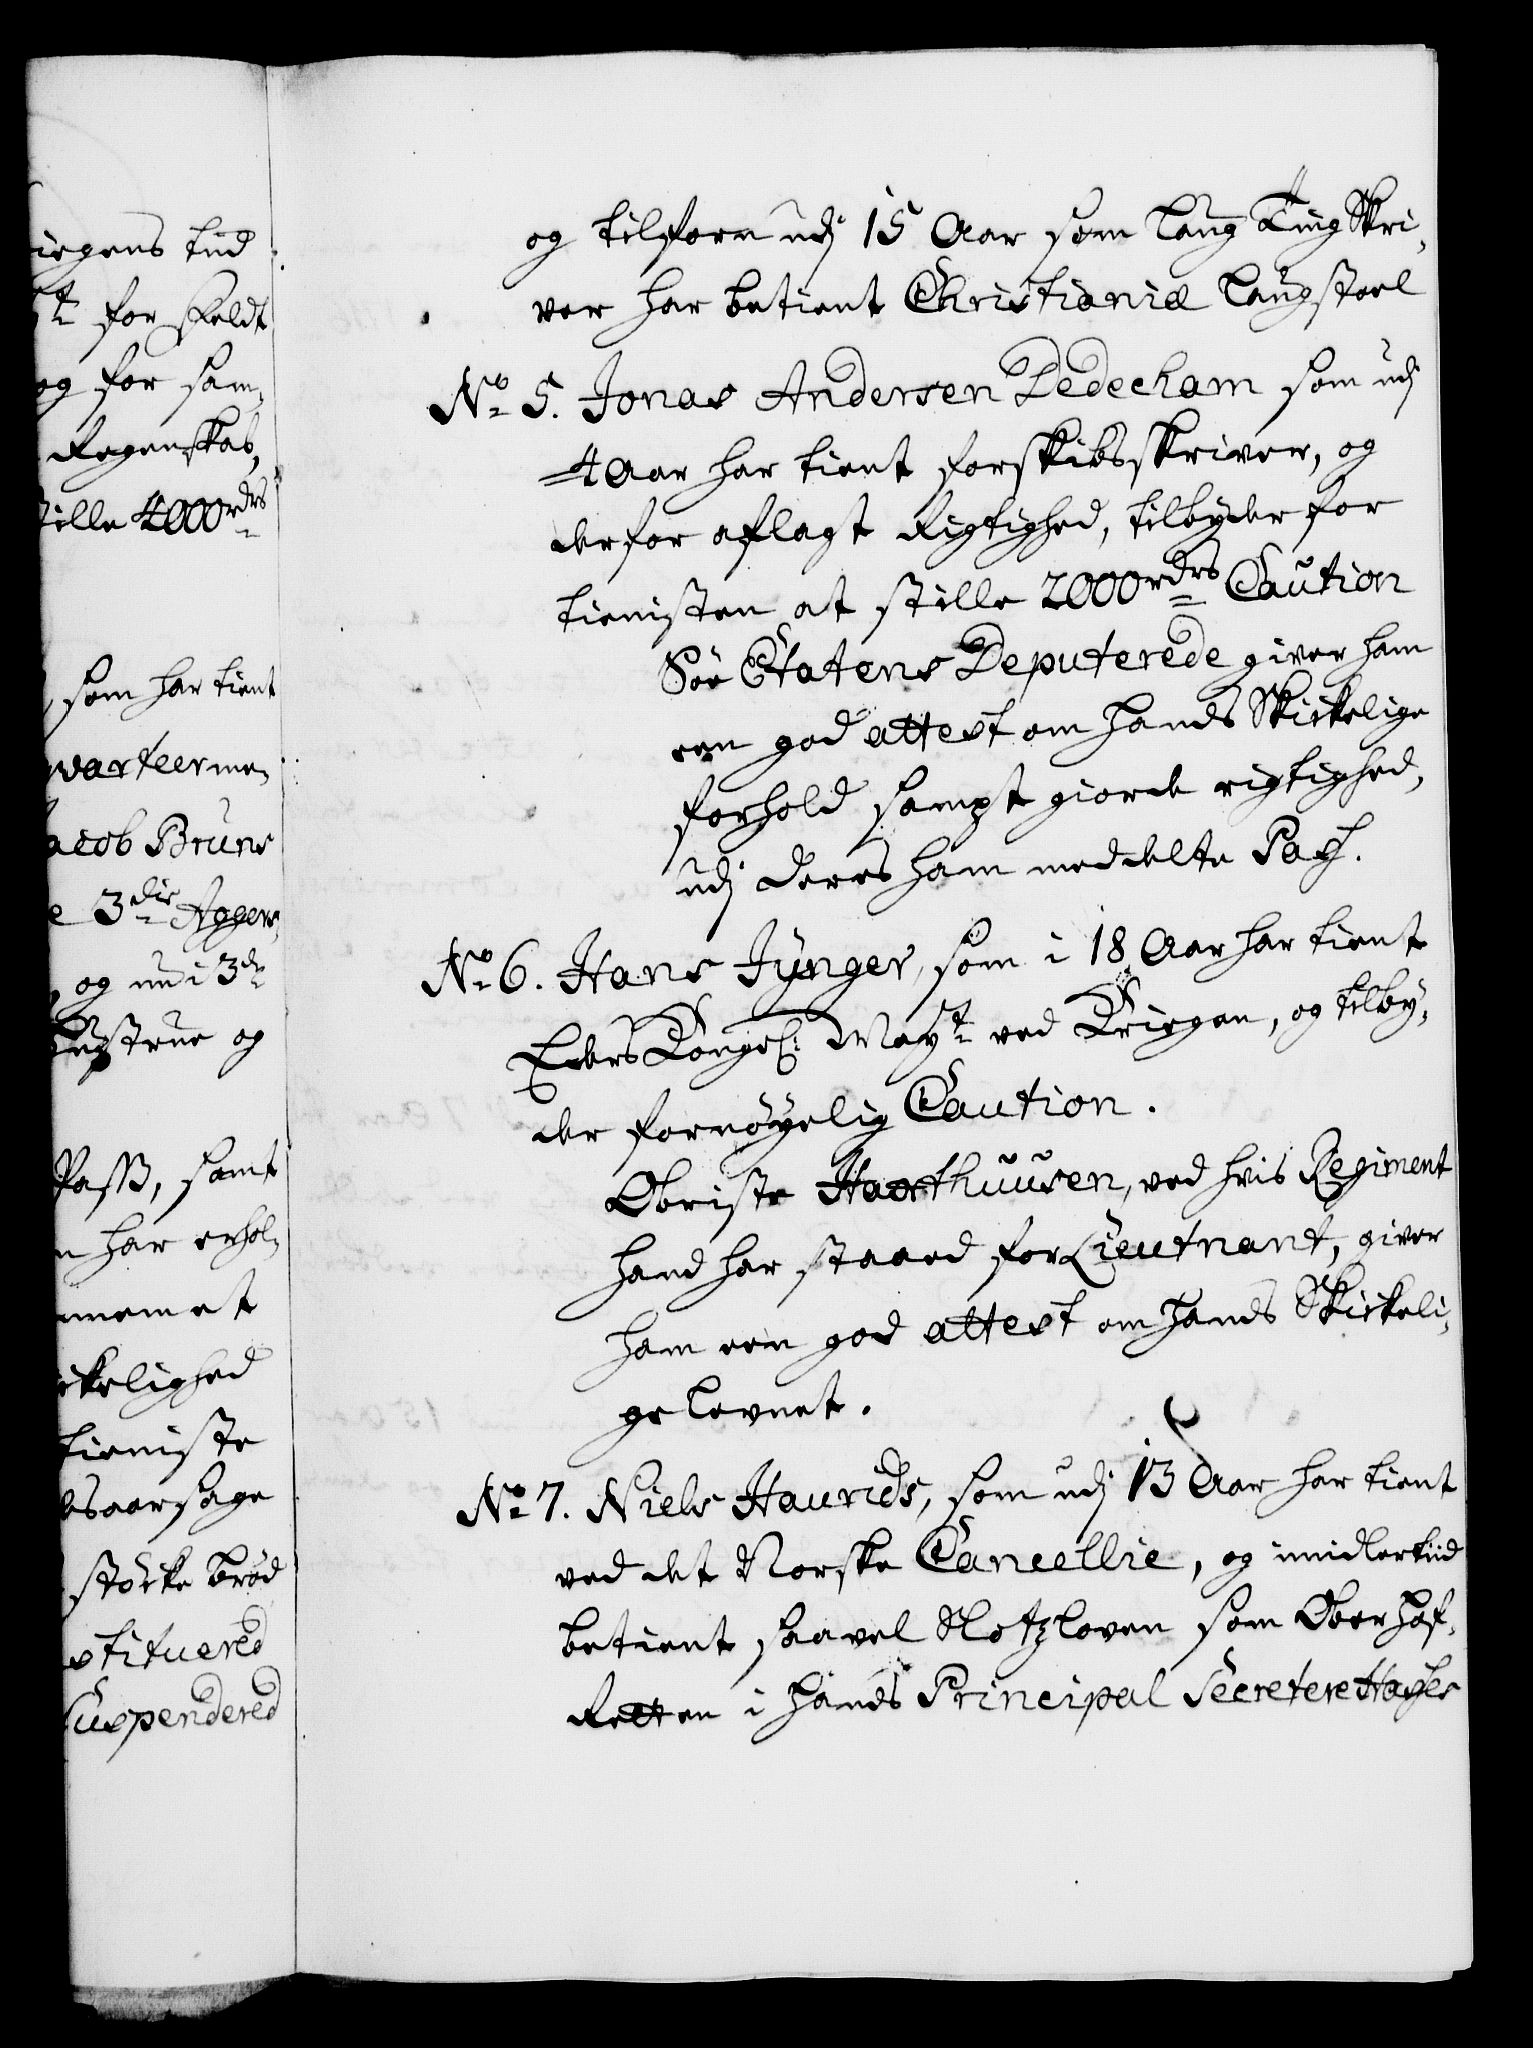 iegens tiid
t for Feldt
og for sam-
Regenskab,
stille 4000 rdrs
, som har tient
qvarteerme-
acob Bruns
e 3die Aggers-
, og nu i 3de
og
Pass, samt
n har erhol-
nnem at
ikelighed
tieniste
bsaarsage
störke bröd
stituered
Suspendered
og tilforn udj 15 Aar som Laug Ting Skri-
ver har betient Christianiæ Laugstoel
No 5. Jonas Andersen Dedecham som udj
4 Aar har tient for Skibsskriver, og
derfor aflagt Rigtighed, tilbyder for
tienisten at stille 2000 rdrs Caution
Söe Etatens Deputerede giver ham
een god attest om hands Skikelige
forhold sampt giorde rigtighed,
udj deres ham meddelte Pass.
No 6. Hans Jÿnger, som i 18 Aar har tient
Eders Kongel: Mayt ved Kriegen, og tilby-
der fornöyelig Caution.
Obriste Haxthuusen, ved hvis Regiment
hand har staaed for Lieutnant, giver
ham een god attest om hands Skikeli-
ge levnet.
No 7. Niels Haurids, som udj 13 Aar har tient
ved det Norske Cancellie, og imidlertiid
betient saavel Slotzloven som OberHof-
Retten i hands Principal Secretere Hasses